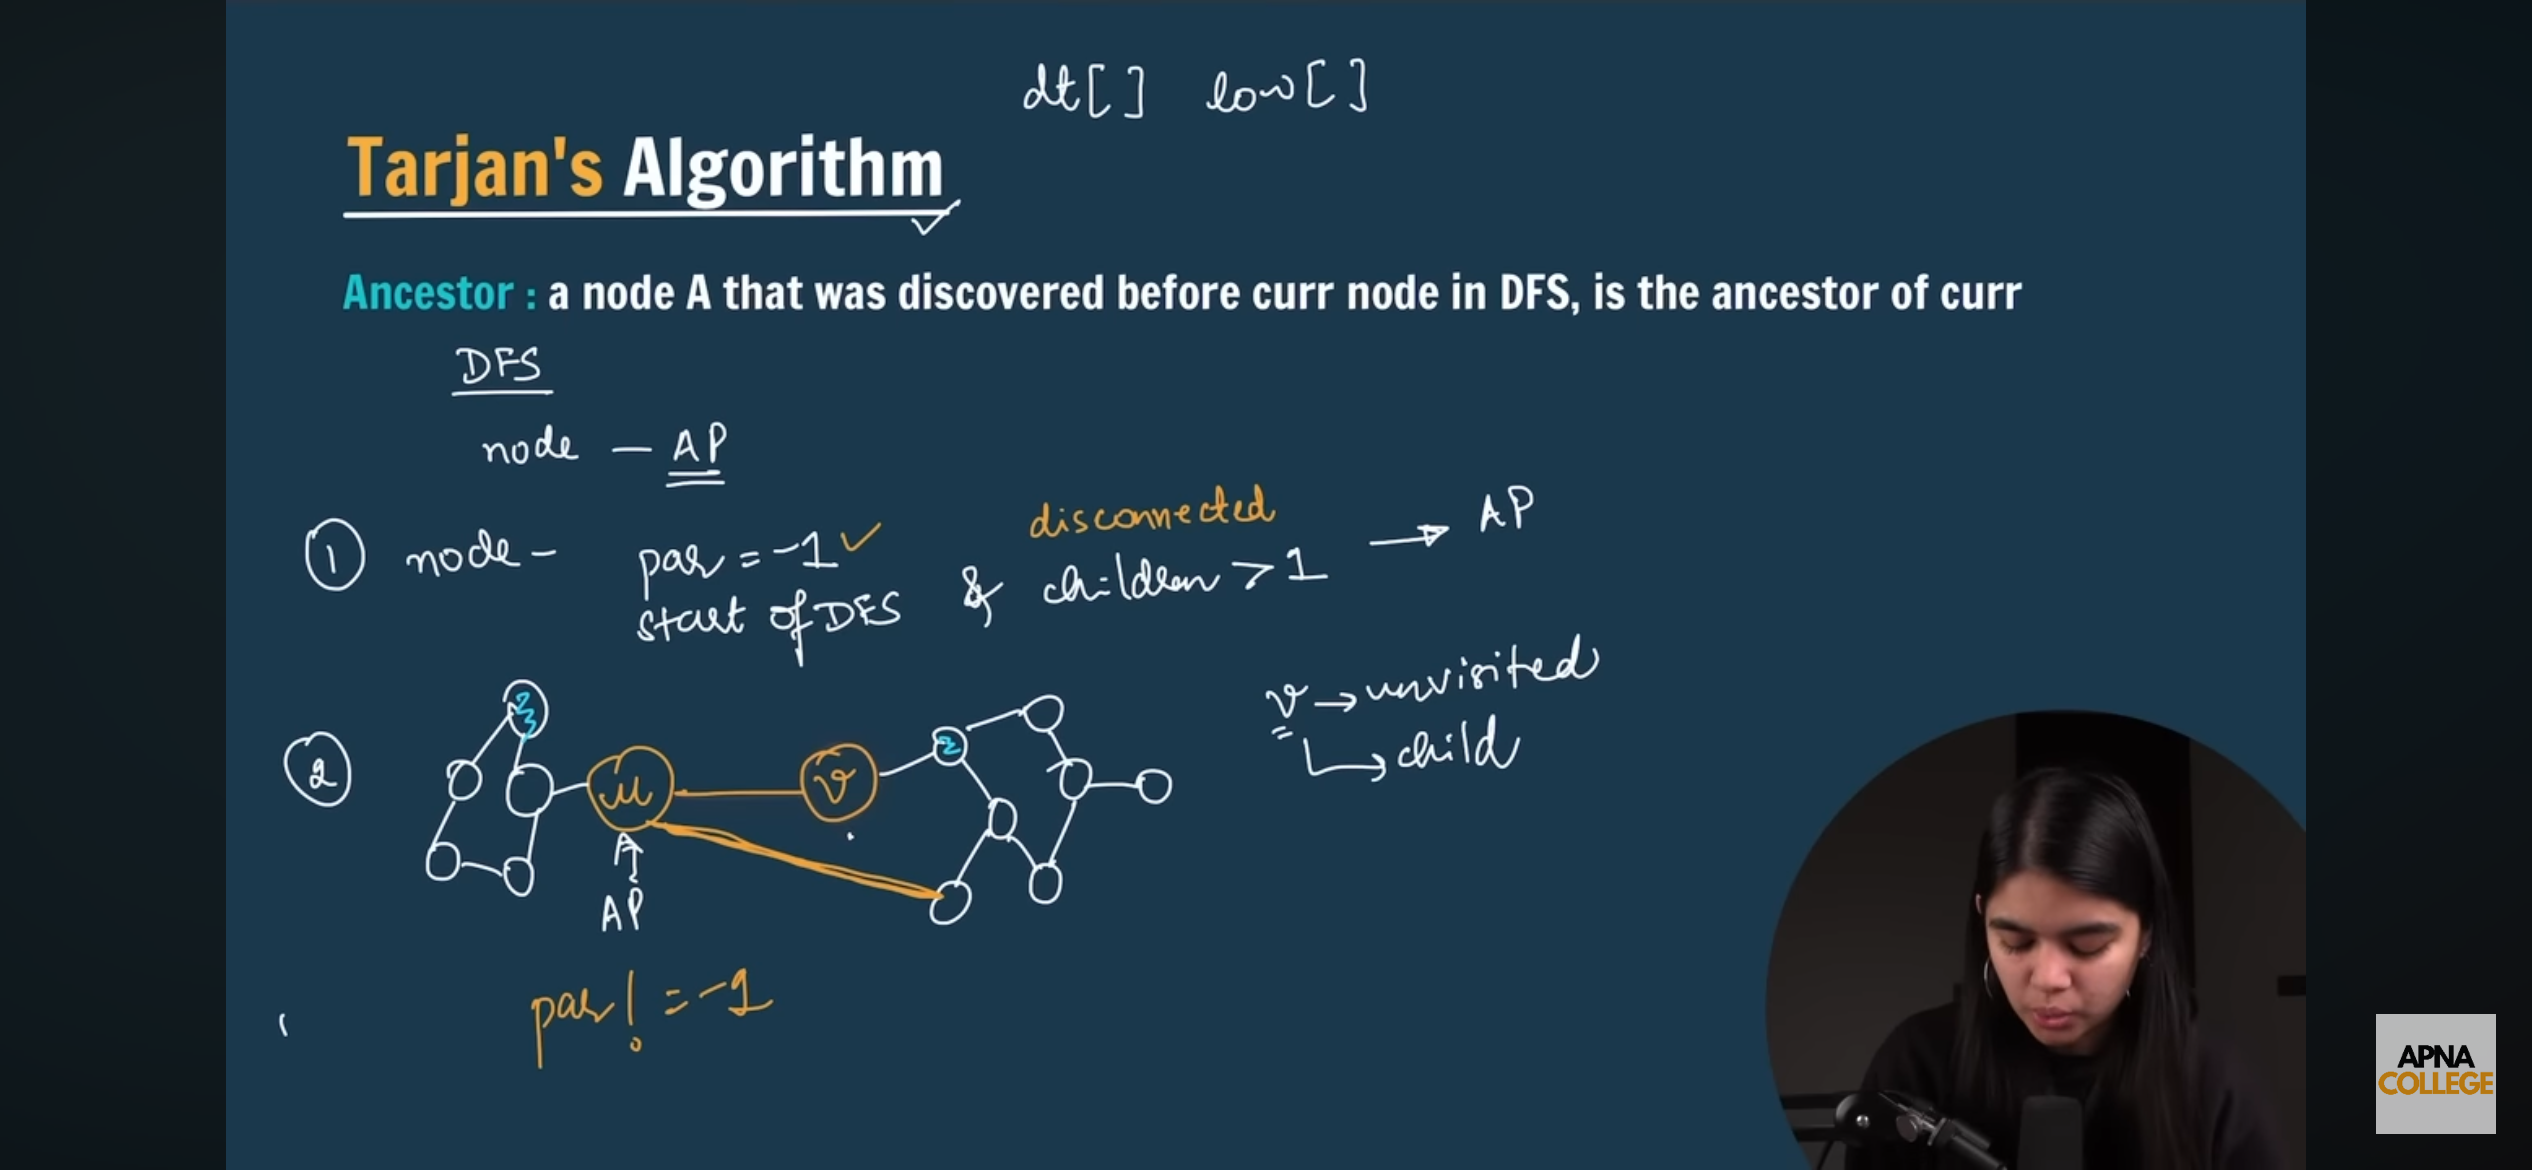 dt[ ] low[ ]
Tarjan's Algorithm
Ancestor : a node A that was discovered before curr node in DFS, is the ancestor of curr
DFS
node — AP
① node – par = -1 ✓ & disconnected children > 1 → AP
start of DFS
v → unvisited
↳ child
②
u v
AP
par! = -1
APNA
COLLEGE